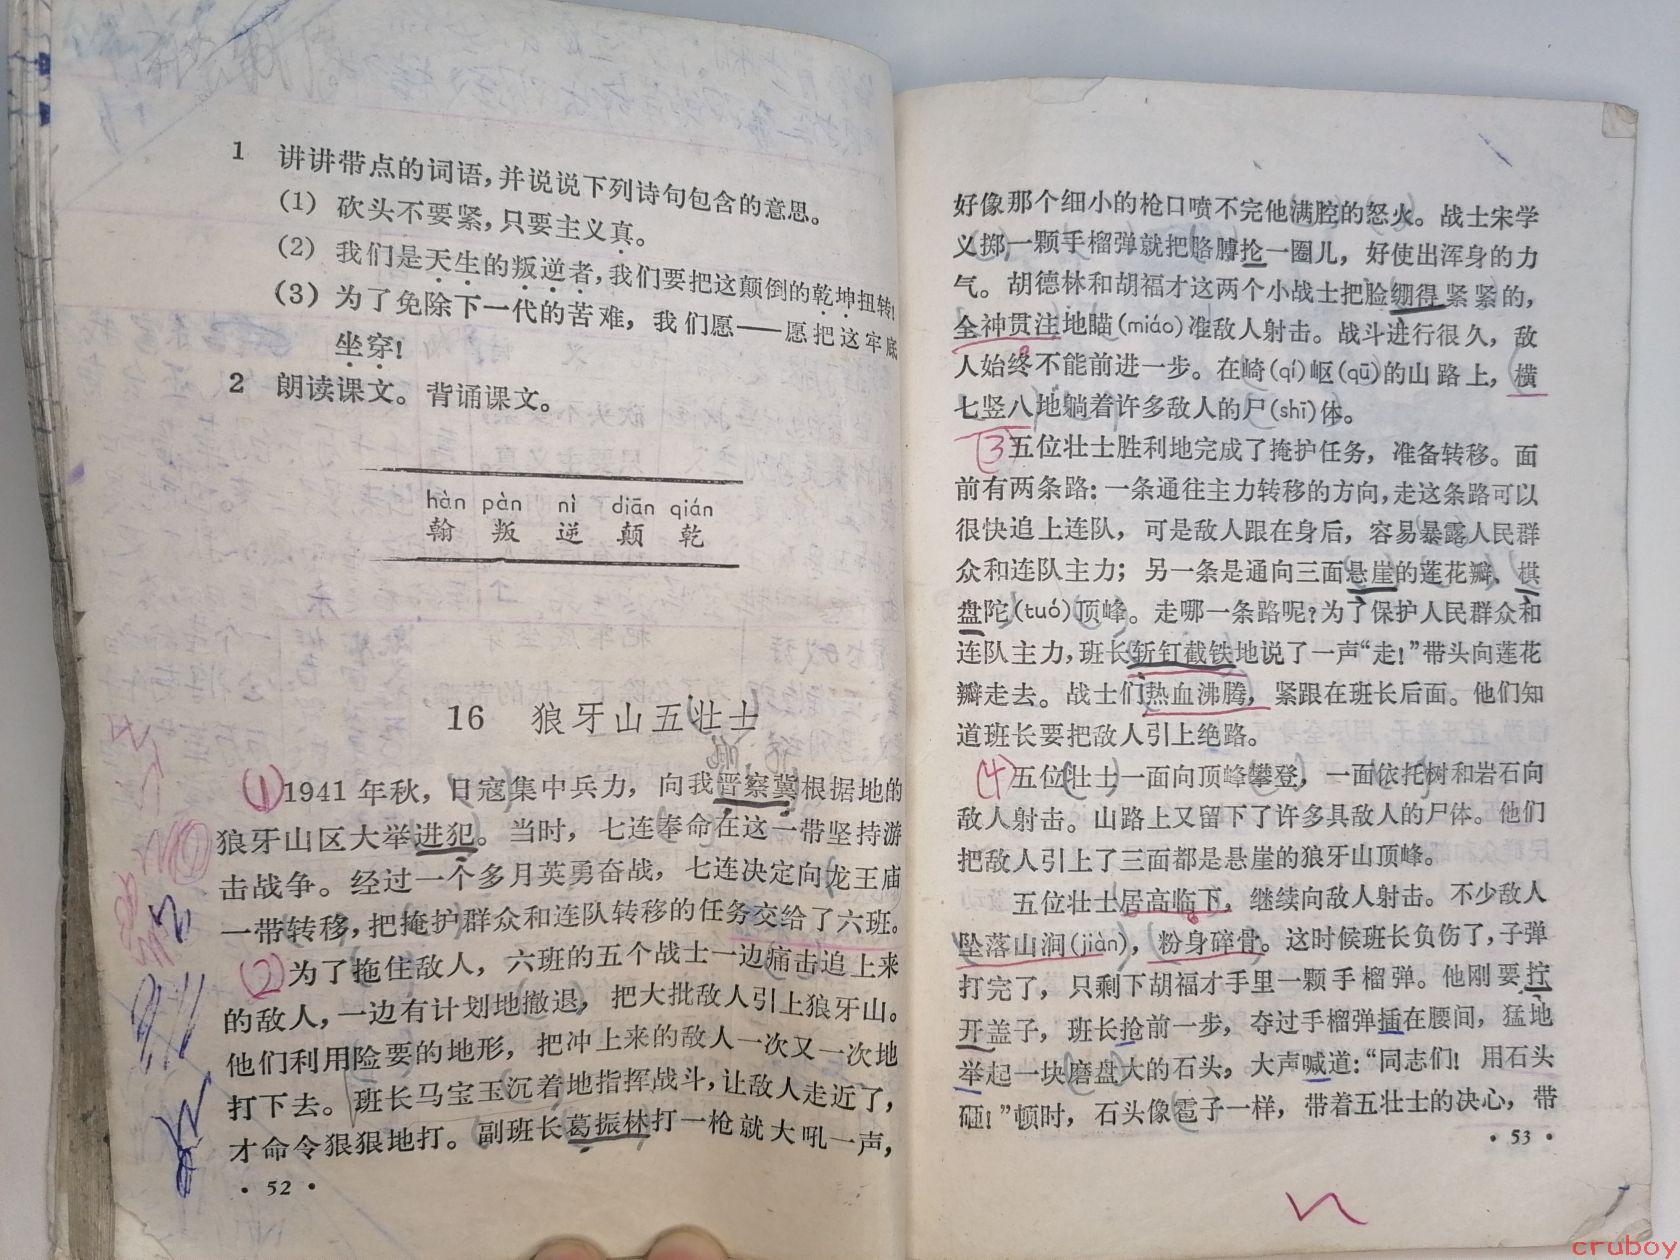 1 讲讲带点的词语，并说说下列诗句包含的意思。
(1) 砍头不要紧，只要主义真。
(2) 我们是天生的叛逆者，我们要把这颠倒的乾坤扭转！
(3) 为了免除下一代的苦难，我们愿——愿把这牢底
坐穿！
2 朗读课文。背诵课文。
hàn pàn nì diān qián
翰 叛 逆 颠 乾
16 狼牙山五壮士
(1) 1941年秋，日寇集中兵力，向我晋察冀根据地的
狼牙山区大举进犯。当时，七连奉命在这一带坚持游
击战争。经过一个多月英勇奋战，七连决定向龙王庙
一带转移，把掩护群众和连队转移的任务交给了六班。
(2) 为了拖住敌人，六班的五个战士一边痛击追上来
的敌人，一边有计划地撤退，把大批敌人引上狼牙山。
他们利用险要的地形，把冲上来的敌人一次又一次地
打下去。班长马宝玉沉着地指挥战斗，让敌人走近了，
才命令狠狠地打。副班长葛振林打一枪就大吼一声，
· 52 ·
好像那个细小的枪口喷不完他满腔的怒火。战士宋学
义掷一颗手榴弹就把胳膊抡一圈儿，好使出浑身的力
气。胡德林和胡福才这两个小战士把脸绷得紧紧的，
全神贯注地瞄(miáo)准敌人射击。战斗进行很久，敌
人始终不能前进一步。在崎(qí)岖(qū)的山路上，横
七竖八地躺着许多敌人的尸(shī)体。
(3) 五位壮士胜利地完成了掩护任务，准备转移。面
前有两条路：一条通往主力转移的方向，走这条路可以
很快追上连队，可是敌人跟在身后，容易暴露人民群
众和连队主力；另一条是通向三面悬崖的莲花瓣、棋
盘陀(tuó)顶峰。走哪一条路呢？为了保护人民群众和
连队主力，班长斩钉截铁地说了一声“走！”带头向莲花
瓣走去。战士们热血沸腾，紧跟在班长后面。他们知
道班长要把敌人引上绝路。
(4) 五位壮士一面向顶峰攀登，一面依托树和岩石向
敌人射击。山路上又留下了许多具敌人的尸体。他们
把敌人引上了三面都是悬崖的狼牙山顶峰。
五位壮士居高临下，继续向敌人射击。不少敌人
坠落山涧(jiàn)，粉身碎骨。这时候班长负伤了，子弹
打完了，只剩下胡福才手里一颗手榴弹。他刚要拧
开盖子，班长抢前一步，夺过手榴弹插在腰间，猛地
举起一块磨盘大的石头，大声喊道：“同志们！用石头
砸！”顿时，石头像雹子一样，带着五壮士的决心，带
· 53 ·
cruboy